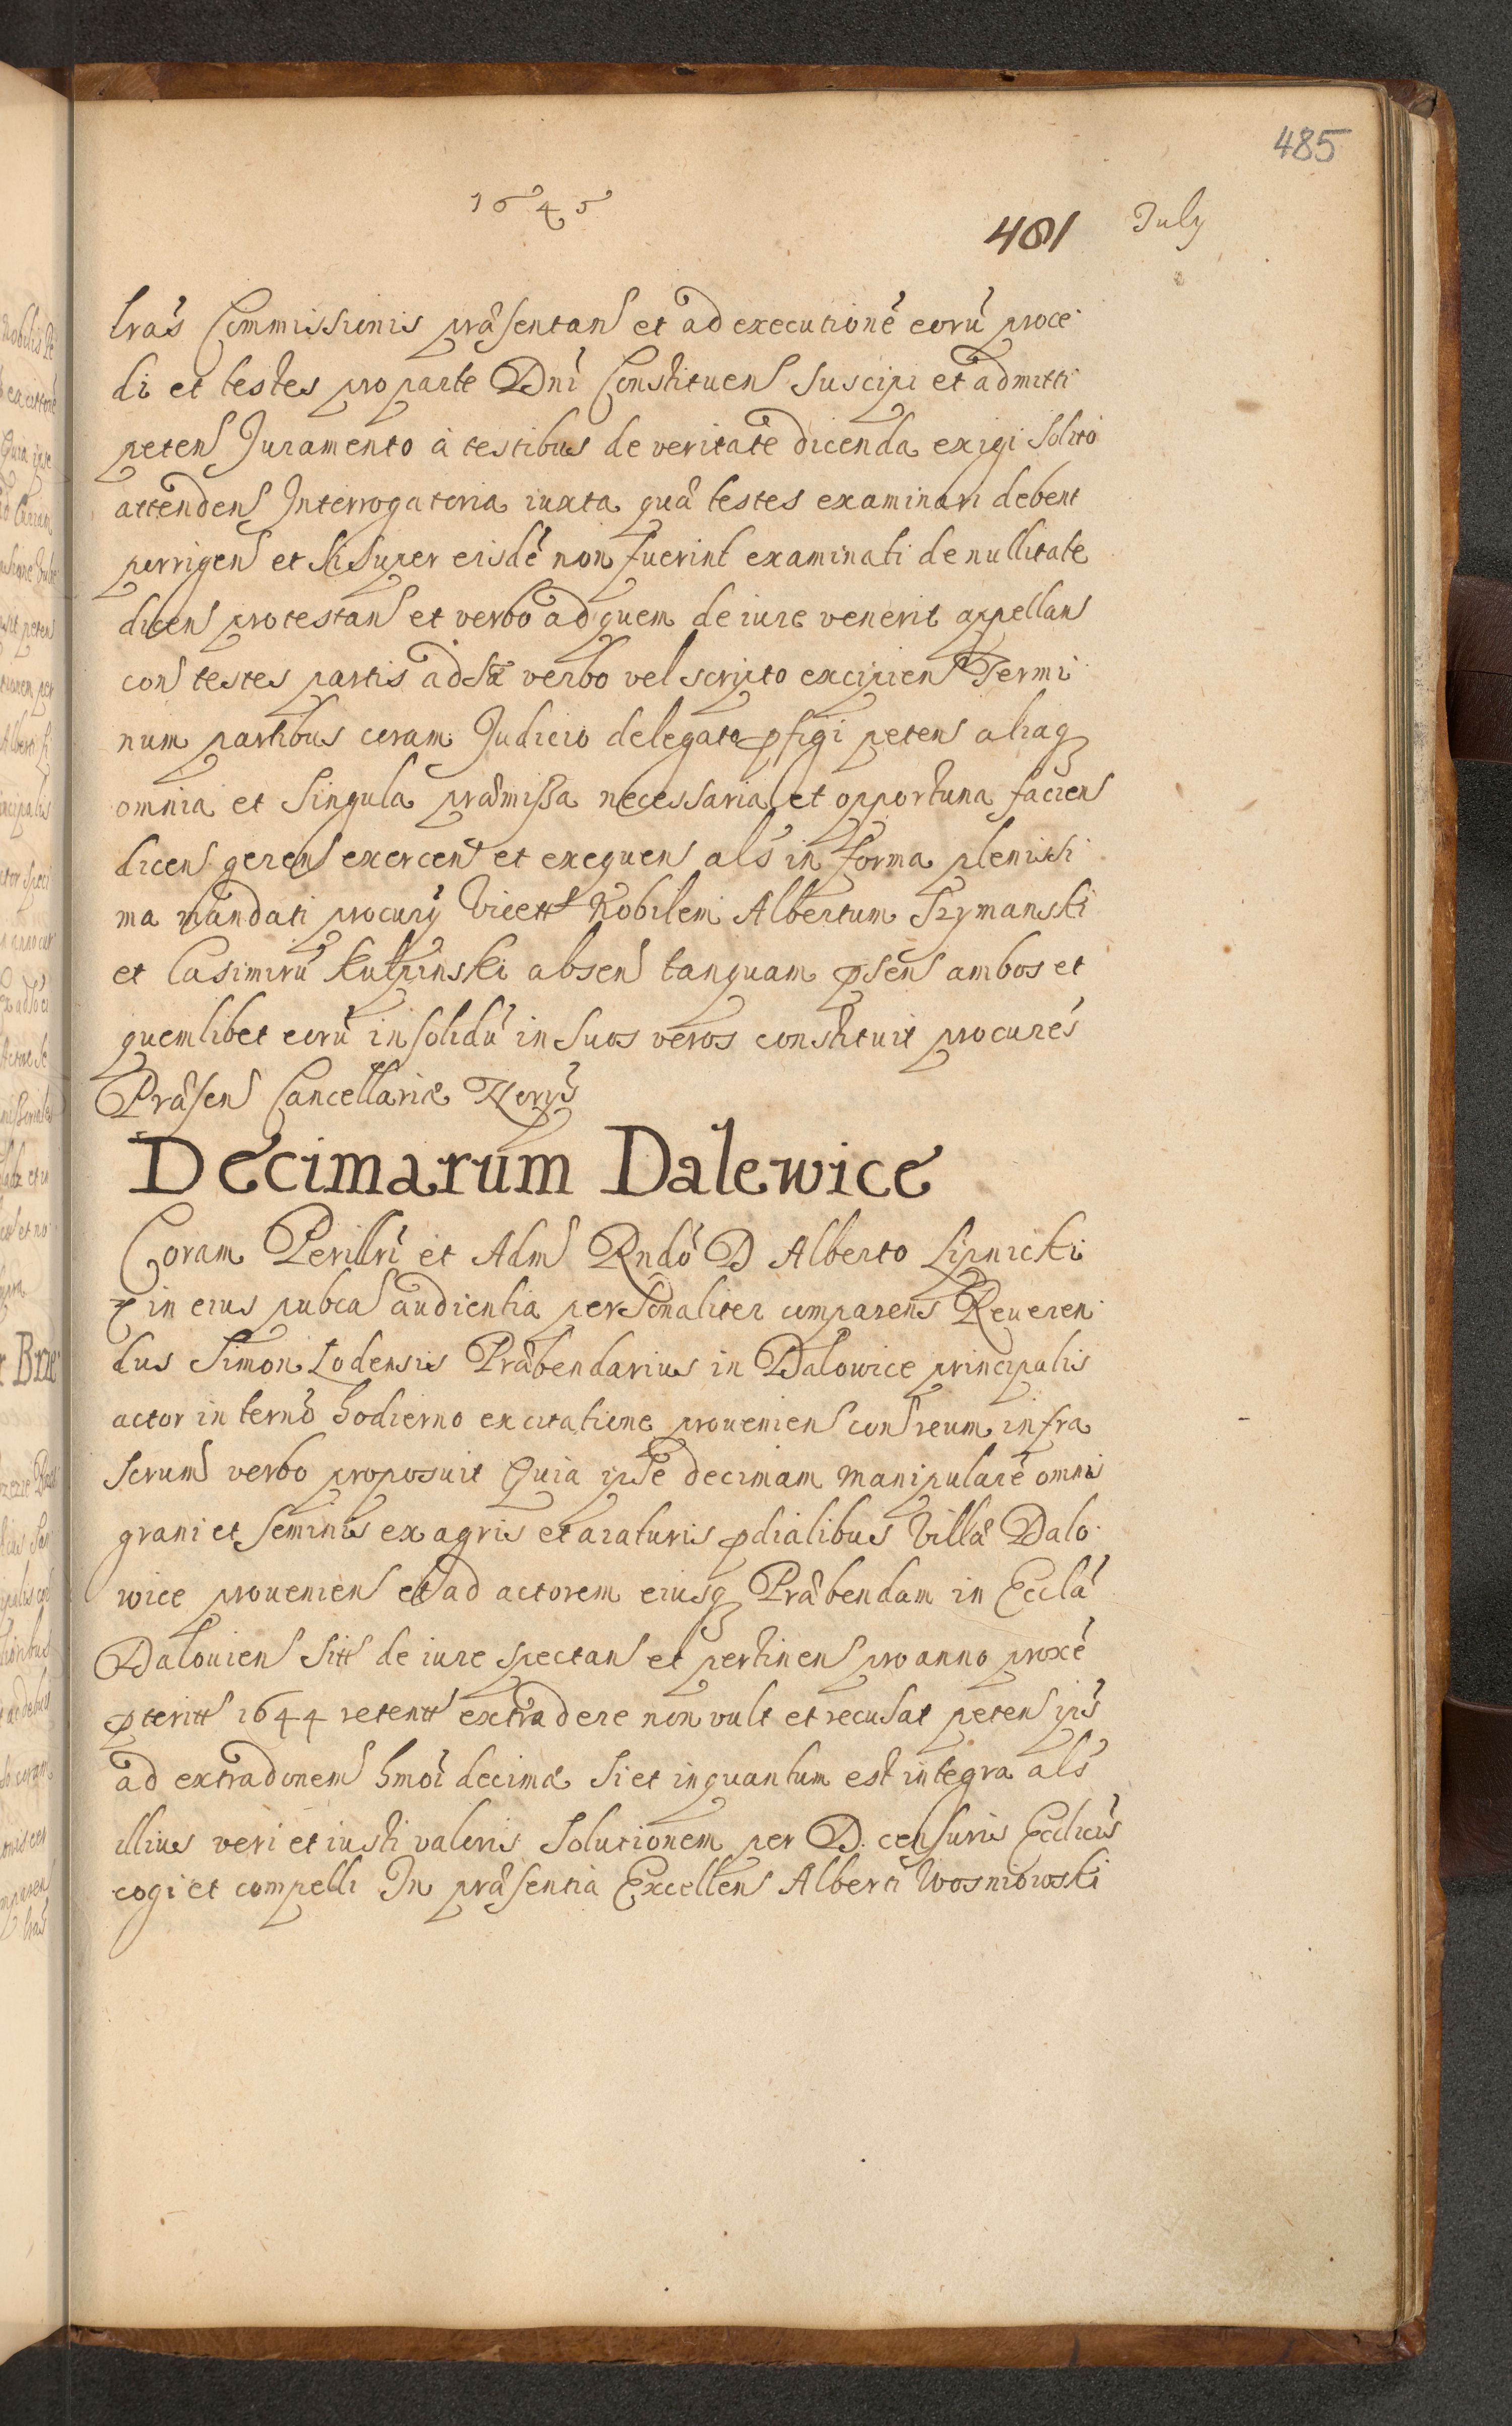 485
1645
481 July
lras Commissionis præsentans et ad executionē eorū proce
di et testes pro parte Dni Constituens suscipi et admitti
petens Juramento à testibus de veritate dicenda exigi solito
attendens Interrogatoria iuxta quæ testes examinari debent
porrigens et si super eisdē non fuerint examinati de nullitate
dicens protestans et verbo ad quem de iure venerit appellans
con testes partis adsæ verbo vel scripto excipiens Termi
num partibus coram Judicio delegato pfigi petens aliaq
omnia et singula præmissa necessaria et opportuna faciens
dicens gerens exercens et exequens als in forma plenissi
ma mandati procurÿ Nobilem Albertum Szymanski
et Casimirū Kulpinski absens tanquam psens ambos et
quemlibet eorū in solidū in suos veros constituit procures
Præsen Cancellariæ
Decimarum Dalewice
Coram Perillri et Adm Rndo D Alberto Lipnicki
in eius pubca audientia personaliter comparens Reueren
dus Simon Lodensis Præbendarius in Dalowice principalis
actor in termo hodierno ex citatione proueniens con reum infra
scrum verbo proposuit Quia ipse decimam manipularē omnis
grani et seminis ex agris et araturis pdialibus Villæ Dalo
wice proueniens et ad actorem eiusq Præbendam in Eccla
Dalouiens sitt de iure spectans et pertinens pro anno proxē
pteritt 1644 retentt extradere non vult et recusat petens ips
ad extradonem hmoi decimæ si et inquantum est integra als
illius veri et iusti valoris solutionem per D. censuris Ecclicis
cogi et compelli In præsentia Excellens Alberti Wosniowski